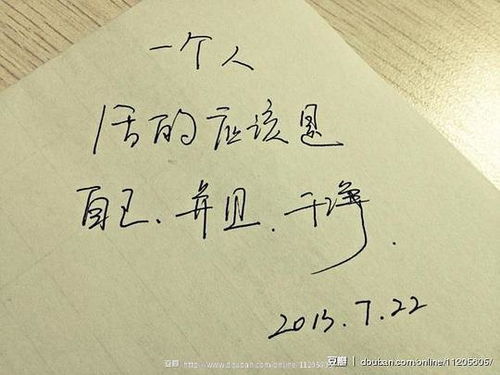 一个人
活的应该是
自己、并且、干净.
2013.7.22
豆瓣 http://www.douban.com/online/11205
豆瓣 douban.com/online/11205605/